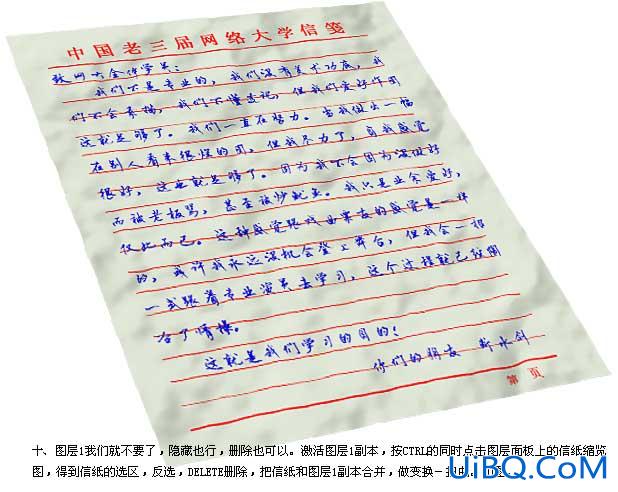 中国老三届网络大学信笺
致网大全体学员:
我们不是专业的,我们没有美术功底,我
们不会素描,我们不懂速记,但我们爱好作图
这就足够了。我们一直在努力。当我做出一幅
在别人看来很烂的图,但我尽力了,自我感觉
很好,这也就足够了。因为我不会因为没做好
而被老板骂,甚至被炒鱿鱼。我只是业余爱好,
仅此而已。这种感觉跟戏曲票友的感觉是一样
的,或许我永远没机会登上舞台,但我会一招
一式跟着专业演员去学习,这个过程就已经陶
冶了情操。
这就是我们学习的目的!
你们的朋友 断水剑
第 页
十、图层1我们就不要了,隐藏也行,删除也可以。激活图层1副本,按CTRL的同时点击图层面板上的信纸缩览
图,得到信纸的选区,反选,DELETE删除,把信纸和图层1副本合并,做变换-扭曲
UiBQ.CoM